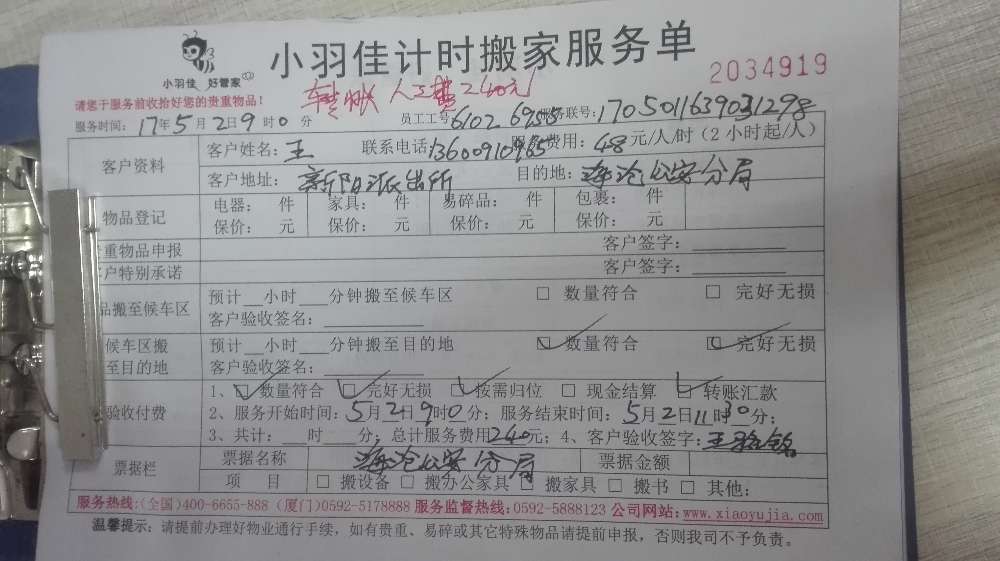 小羽佳 好管家
小羽佳计时搬家服务单
2034919
请您于服务前收拾好您的贵重物品!
转账 人工费240元
服务时间: 17年5月2日9时0分 员工工号 61026955 服务联号: 1705011639031298
客户资料 客户姓名: 王 联系电话 13600910965 服务费用: 48元/人/时 (2小时起/人)
客户地址: 新阳派出所 目的地: 海沧公安分局
物品登记 电器: 件 家具: 件 易碎品: 件 包裹: 件
保价: 元 保价: 元 保价: 元 保价: 元
贵重物品申报 客户签字:
客户特别承诺 客户签字:
品搬至候车区 预计__小时___分钟搬至候车区 □ 数量符合 □ 完好无损
客户验收签名:
候车区搬 预计__小时___分钟搬至目的地 ☑ 数量符合 ☑ 完好无损
至目的地 客户验收签名:
验收付费 1、☑数量符合 ☑完好无损 ☑按需归位 □ 现金结算 ☑ 转账汇款
2、服务开始时间: 5月2日9时0分; 服务结束时间: 5月2日11时30分;
3、共计: __时___分; 总计服务费用240元; 4、客户验收签字:
票据栏 票据名称 海沧公安分局 票据金额
项 目 □ 搬设备 □ 搬办公家具 □ 搬家具 □ 搬书 □ 其他:
服务热线:(全国)400-6655-888 (厦门)0592-5178888 服务监督热线:0592-5888123 公司网站:www.xiaoyujia.com
温馨提示: 请提前办理好物业通行手续,如有贵重、易碎或其它特殊物品请提前申报,否则我司不予负责。